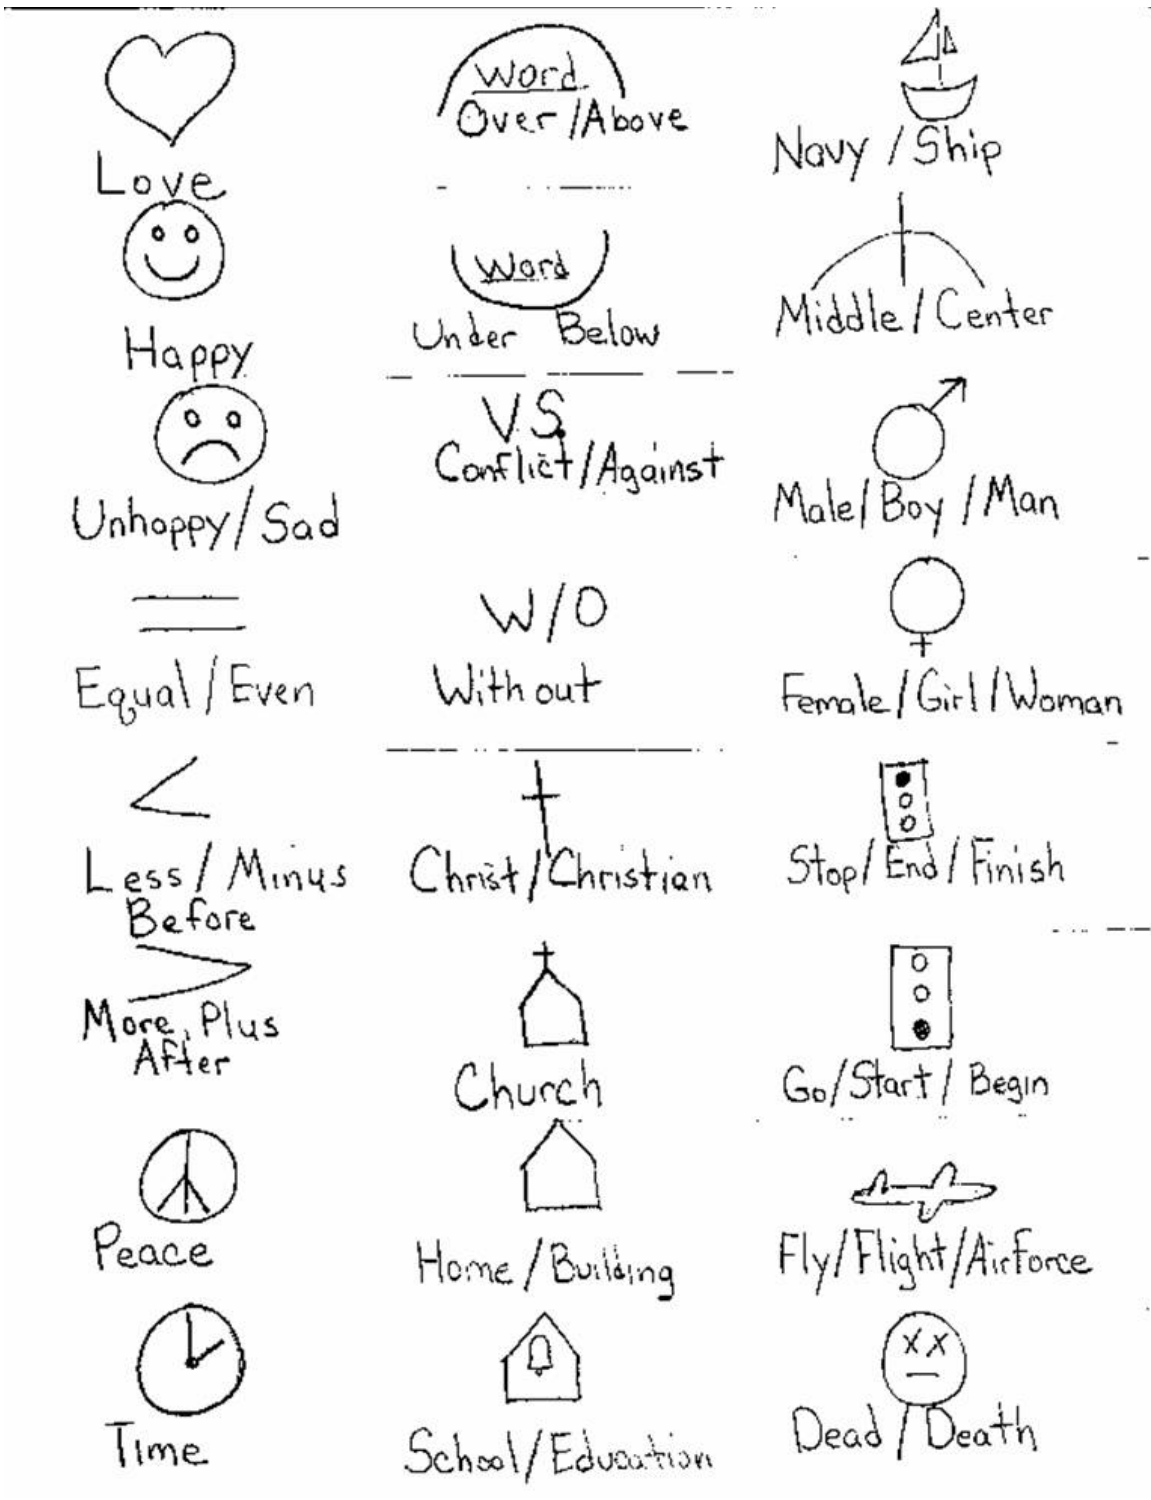 Love
Happy
Unhappy/Sad
Equal/Even
Less/Minus
Before
More, Plus
After
Peace
Time
Word
Over/Above
Word
Under Below
V.S.
Conflict/Against
W/O
Without
Christ/Christian
Church
Home/Building
School/Education
Navy/Ship
Middle/Center
Male/Boy/Man
Female/Girl/Woman
Stop/End/Finish
Go/Start/Begin
Fly/Flight/Airforce
XX
Dead/Death